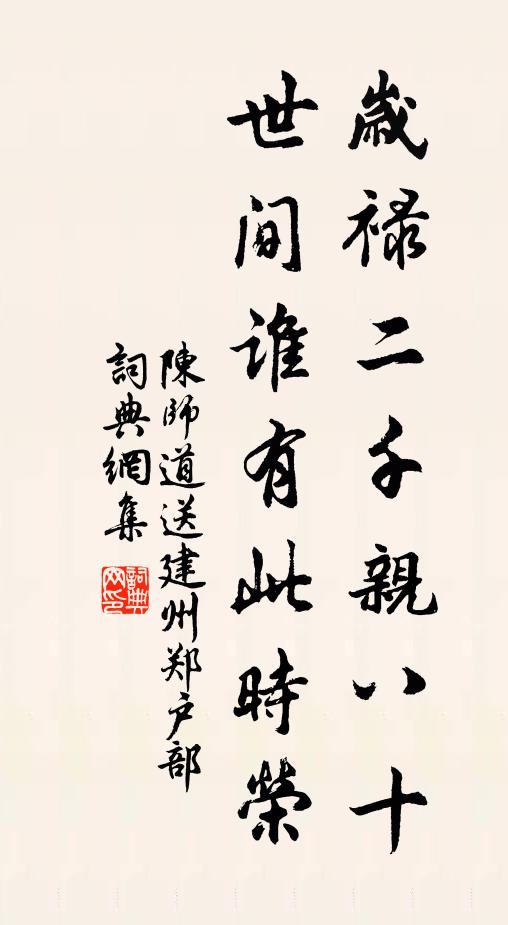 歲禄二千親八十
世间誰有此時榮
陳師道送建州郑户部
詞典網集
詞典网印